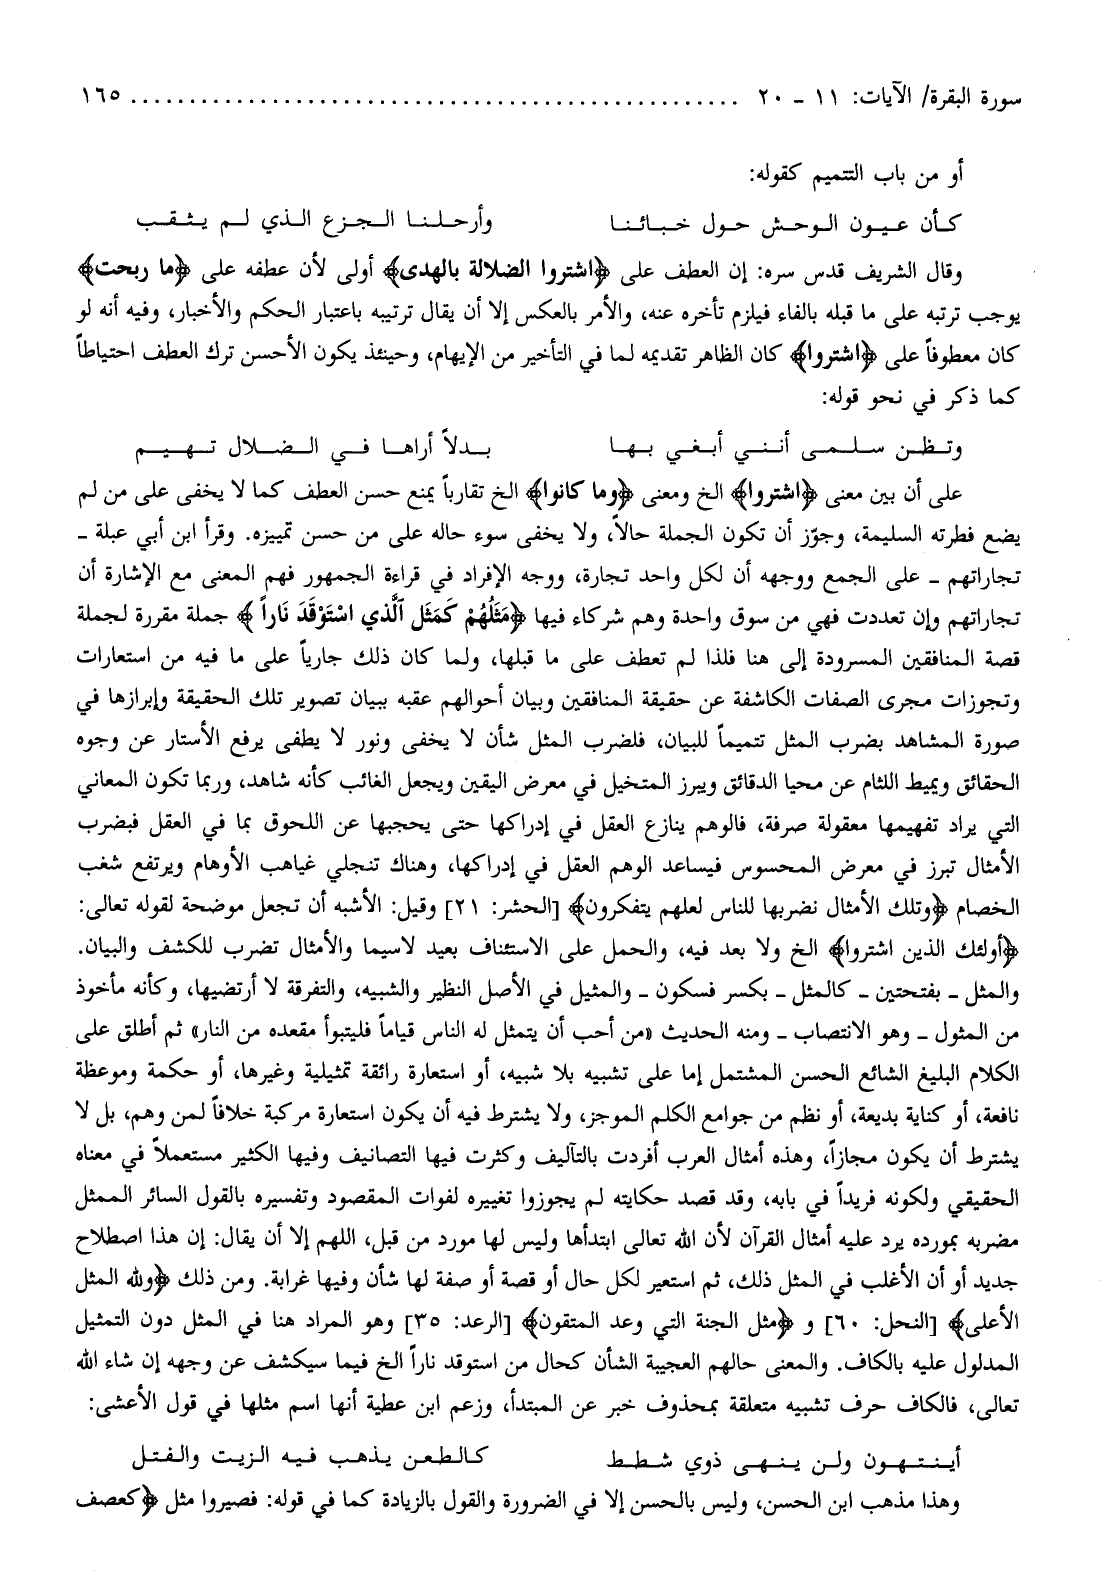 سورة البقرة/ الآيات: ١١ - ٢٠ .................................................... ١٦٥
أو من باب التتميم كقوله:
كأن عيون الوحش حول خبائنا وأرحلنا الجزع الذي لم يثقب
وقال الشريف قدس سره: إن العطف على ﴿اشتروا الضلالة بالهدى﴾ أولى لأن عطفه على ﴿ما ربحت﴾
يوجب ترتبه على ما قبله بالفاء فيلزم تأخره عنه، والأمر بالعكس إلا أن يقال ترتيبه باعتبار الحكم والأخبار، وفيه أنه لو
كان معطوفاً على ﴿اشتروا﴾ كان الظاهر تقديمه لما في التأخير من الإيهام، وحينئذ يكون الأحسن ترك العطف احتياطاً
كما ذكر في نحو قوله:
وتظن سلمى أنني أبغي بها بدلاً أراها في الضلال تهيم
على أن بين معنى ﴿اشتروا﴾ الخ ومعنى ﴿وما كانوا﴾ الخ تقارباً يمنع حسن العطف كما لا يخفى على من لم
يضع فطرته السليمة، وجوّز أن تكون الجملة حالاً، ولا يخفى سوء حاله على من حسن تمييزه. وقرأ ابن أبي عبلة -
تجاراتهم - على الجمع ووجهه أن لكل واحد تجارة، ووجه الإفراد في قراءة الجمهور فهم المعنى مع الإشارة أن
تجاراتهم وإن تعددت فهي من سوق واحدة وهم شركاء فيها ﴿مَثَلُهُمْ كَمَثَل ٱلَّذي اسْتَوْقَدَ نَاراً﴾ جملة مقررة لجملة
قصة المنافقين المسرودة إلى هنا فلذا لم تعطف على ما قبلها، ولما كان ذلك جارياً على ما فيه من استعارات
وتجوزات مجرى الصفات الكاشفة عن حقيقة المنافقين وبيان أحوالهم عقبه ببيان تصوير تلك الحقيقة وإبرازها في
صورة المشاهد بضرب المثل تتميماً للبيان، فلضرب المثل شأن لا يخفى ونور لا يطفى يرفع الأستار عن وجوه
الحقائق ويميط اللثام عن محيا الدقائق ويبرز المتخيل في معرض اليقين ويجعل الغائب كأنه شاهد، وربما تكون المعاني
التي يراد تفهيمها معقولة صرفة، فالوهم ينازع العقل في إدراكها حتى يحجبها عن اللحوق بما في العقل فبضرب
الأمثال تبرز في معرض المحسوس فيساعد الوهم العقل في إدراكها، وهناك تنجلي غياهب الأوهام ويرتفع شغب
الخصام ﴿وتلك الأمثال نضربها للناس لعلهم يتفكرون﴾ [الحشر: ٢١] وقيل: الأشبه أن تجعل موضحة لقوله تعالى:
﴿أولئك الذين اشتروا﴾ الخ ولا بعد فيه، والحمل على الاستئناف بعيد لاسيما والأمثال تضرب للكشف والبيان.
والمثل - بفتحتين - كالمثل - بكسر فسكون - والمثيل في الأصل النظير والشبيه، والتفرقة لا أرتضيها، وكأنه مأخوذ
من المثول - وهو الانتصاب - ومنه الحديث «من أحب أن يتمثل له الناس قياماً فليتبوأ مقعده من النار» ثم أطلق على
الكلام البليغ الشائع الحسن المشتمل إما على تشبيه بلا شبيه، أو استعارة رائقة تمثيلية وغيرها، أو حكمة وموعظة
نافعة، أو كناية بديعة، أو نظم من جوامع الكلم الموجز، ولا يشترط فيه أن يكون استعارة مركبة خلافاً لمن وهم، بل لا
يشترط أن يكون مجازاً، وهذه أمثال العرب أفردت بالتآليف وكثرت فيها التصانيف وفيها الكثير مستعملاً في معناه
الحقيقي ولكونه فريداً في بابه، وقد قصد حكايته لم يجوزوا تغييره لفوات المقصود وتفسيره بالقول السائر الممثل
مضربه بمورده يرد عليه أمثال القرآن لأن الله تعالى ابتدأها وليس لها مورد من قبل، اللهم إلا أن يقال: إن هذا اصطلاح
جديد أو أن الأغلب في المثل ذلك، ثم استعير لكل حال أو قصة أو صفة لها شأن وفيها غرابة. ومن ذلك ﴿ولله المثل
الأعلى﴾ [النحل: ٦٠] و ﴿مثل الجنة التي وعد المتقون﴾ [الرعد: ٣٥] وهو المراد هنا في المثل دون التمثيل
المدلول عليه بالكاف. والمعنى حالهم العجيبة الشأن كحال من استوقد ناراً الخ فيما سيكشف عن وجهه إن شاء الله
تعالى، فالكاف حرف تشبيه متعلقة بمحذوف خبر عن المبتدأ، وزعم ابن عطية أنها اسم مثلها في قول الأعشى:
أينتهون ولن ينهى ذوي شطط كالطعن يذهب فيه الزيت والفتل
وهذا مذهب ابن الحسن، وليس بالحسن إلا في الضرورة والقول بالزيادة كما في قوله: فصيروا مثل ﴿كعصف